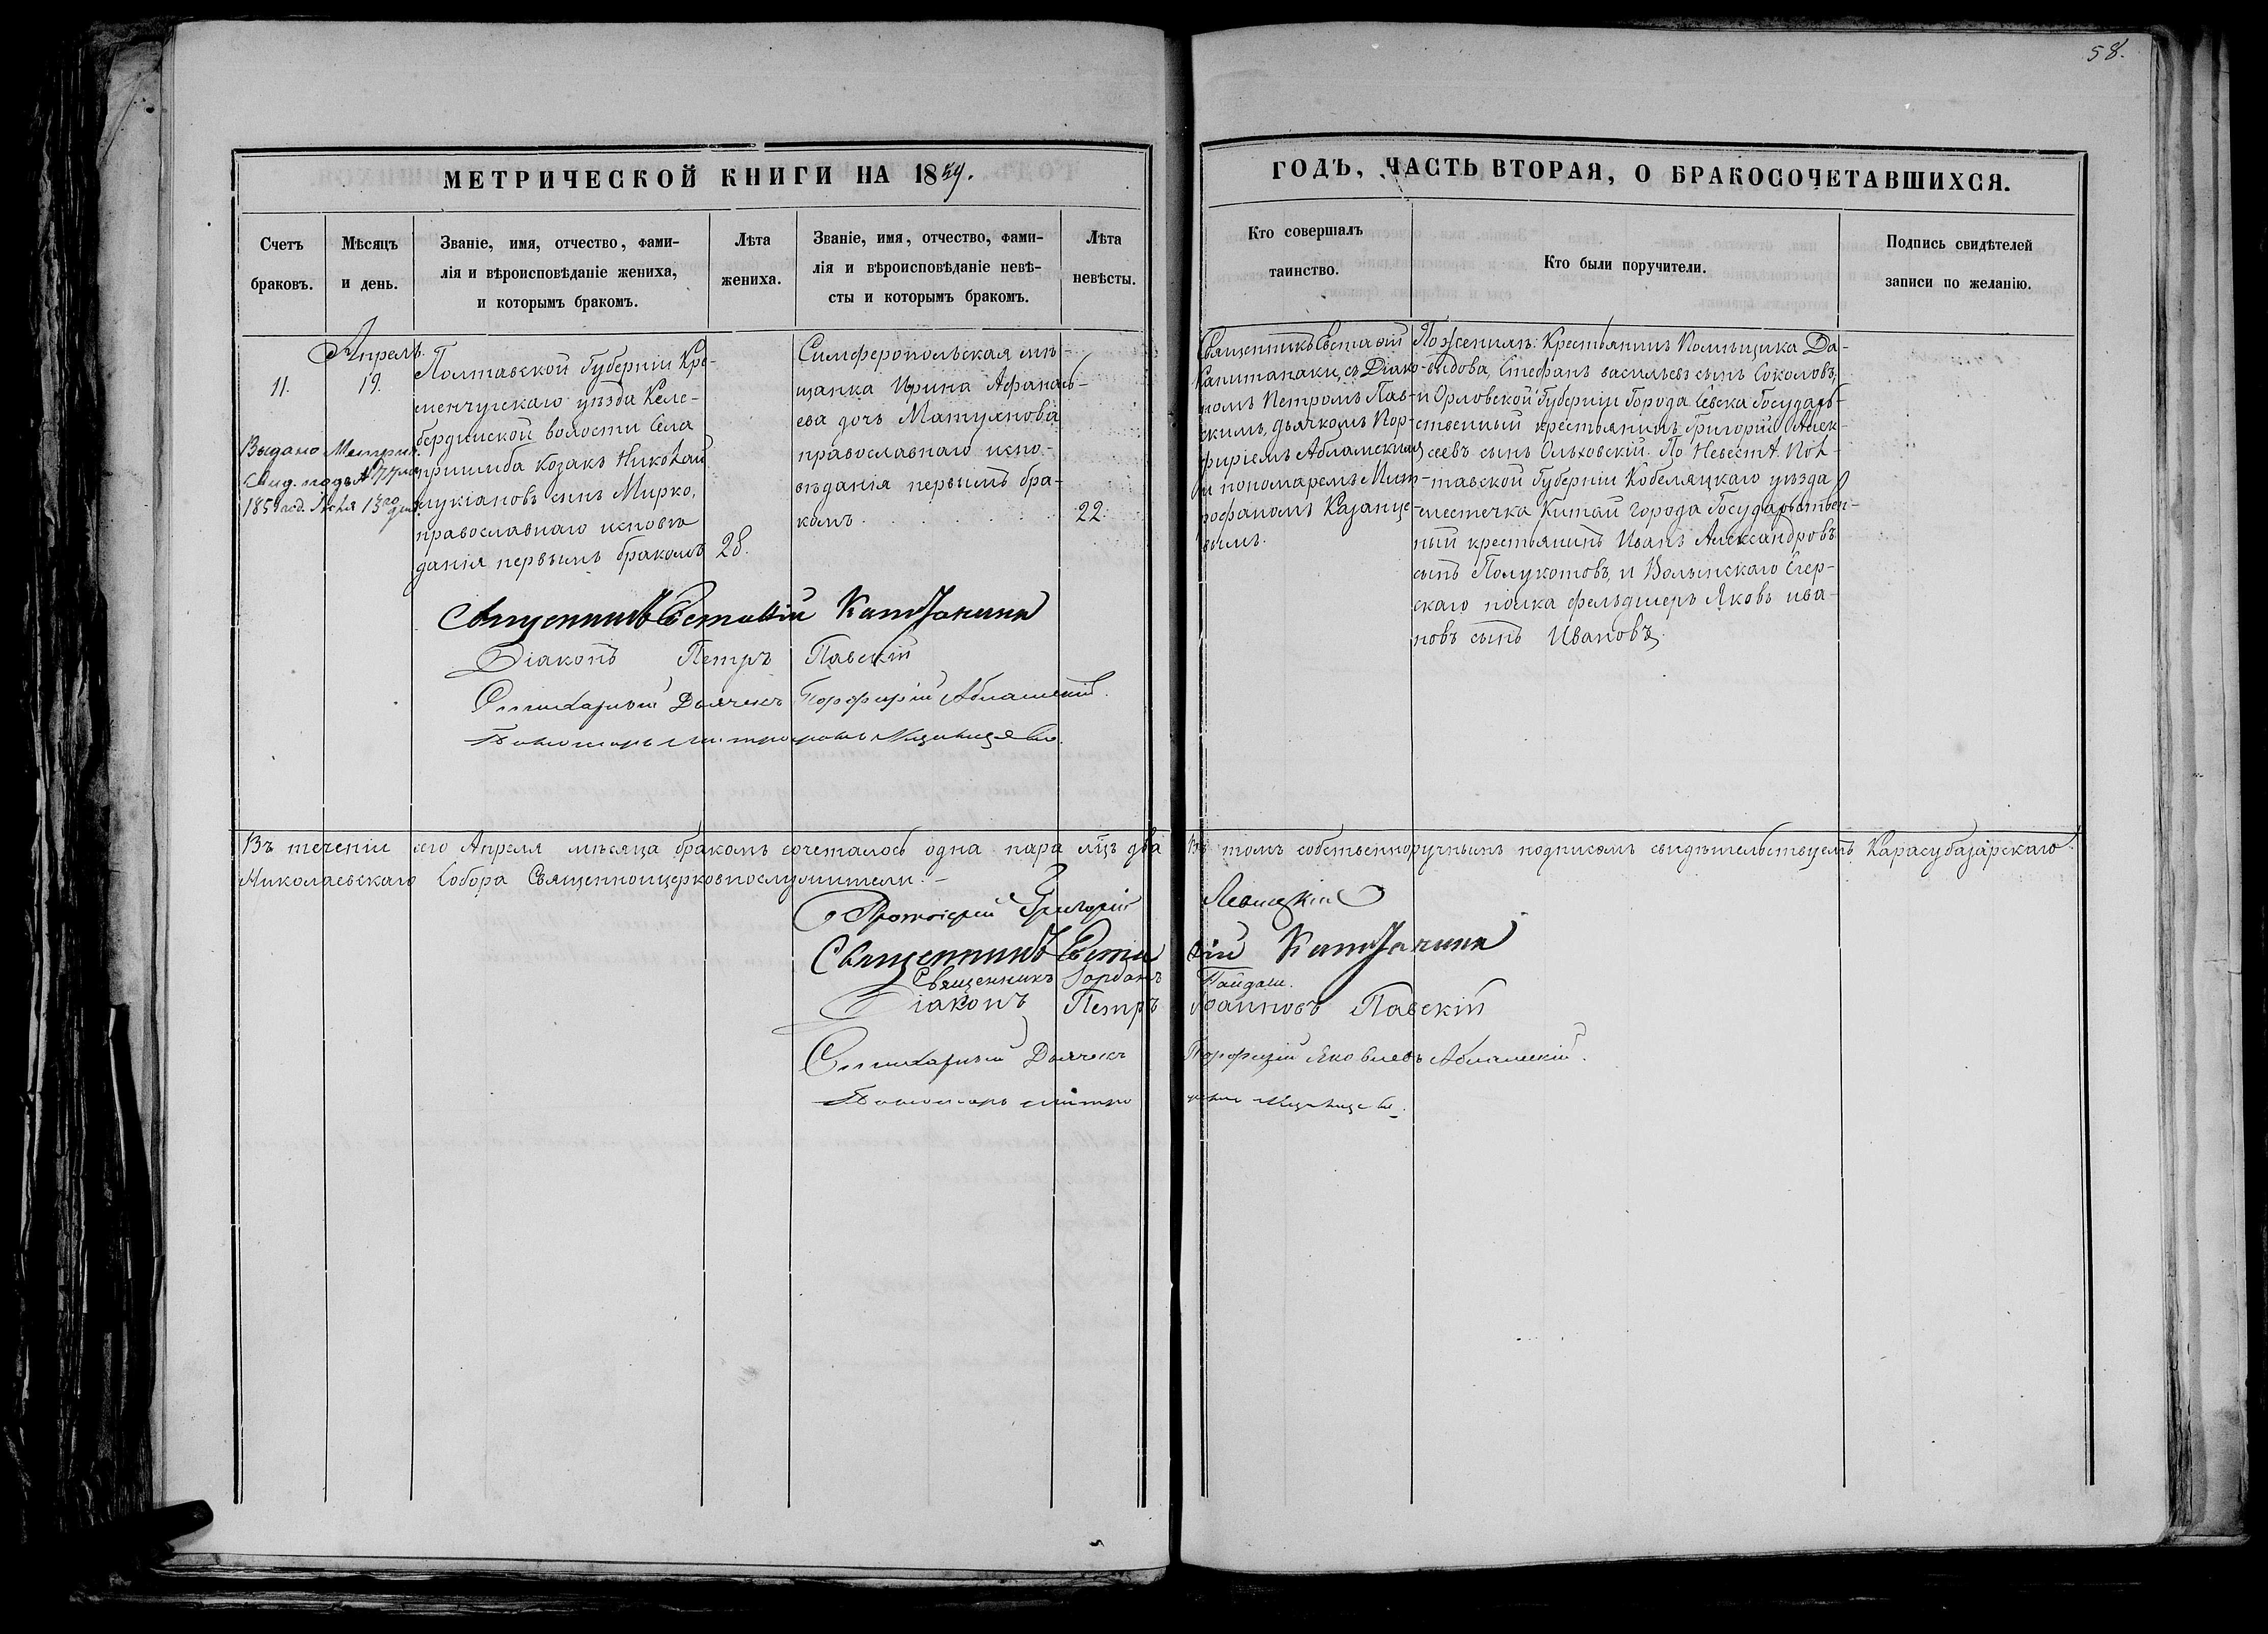 58.
МЕТРИЧЕСКОЙ КНИГИ НА 1859.
ГОДЪ, ЧАСТЬ ВТОРАЯ, О БРАКОСОЧЕТАВШИХСЯ.
Счетъ
браковъ.
Мѣсяцъ
и день.
Званіе, имя, отчество, фами-
лія и вѣроисповѣданіе жениха,
и которымъ бракомъ.
Лѣта
жениха.
Званіе, имя, отчество, фами-
лія и вѣроисповѣданіе невѣ-
сты и которымъ бракомъ.
Лѣта
невѣсты.
Кто совершалъ
таинство.
Кто были поручители.
Подпись свидѣтелей
записи по желанію.
11.
Выдано Метрич.
Свид. подъ № 77
1859 год. 13го дня
Апрель.
19.
Полтавской Губерніи Кре-
менчугскаго уѣзда Келе-
бердинской волости Села
пришиба Козакъ Николай
лукіановъ сынъ Мирко,
православнаго исповѣ
данія первымъ бракомъ
28.
Симферопольская мѣ-
щанка Ирина Афанась-
ева дочь Матухнова
православнаго испо-
вѣданія первымъ бра-
комъ
22
Священникъ Евстафій
Капитанаки, съ Діако-
номъ Петромъ Пав-
скимъ, дьячкомъ Пор-
фиріемъ Абламскимъ
и пономаремъ Мит-
рофаномъ Казанце-
вымъ.
По Женихѣ: Крестьянинъ Помѣщика Да-
выдова, Стефанъ васильевъ сынъ Соколовъ,
и Орловской Губерніи Города Севска Государ-
ственный крестьянинъ Григорій Алек-
сеевъ сынъ Ольховскій. По Невестѣ. Пол-
тавской Губерніи Кобеляцкаго уѣзда
местечка Китай города Государствен-
ный крестьянинъ Иванъ Александровъ
сынъ Полукотовъ, и Волынскаго Егер-
скаго полка фельдшеръ Яковъ ива-
новъ сынъ Ивановъ.
Священникъ Евстафій Капитанаки
Діаконъ Петръ Павскій
Стихарный Дьячекъ Порфирій Абламскій.
Пономарь Митрофанъ Казанцевъ.
Въ теченіи сего Апреля мѣсяца бракомъ сочеталось одна пара лицъ два Въ томъ собственноручнымъ подписомъ свидѣтельствуемъ Карасубазарскаго
Николаевскаго Собора Священноицерковнослужители.
Протоіерей Григорій
Священникъ Евстафій Капитанаки
Священникъ Іорданъ
Діаконъ Петръ Іоанновъ Павскій
Стихарный Дьячекъ Порфирій Яковлевъ Абламскій.
Пономарь Митрофанъ Казанцевъ.